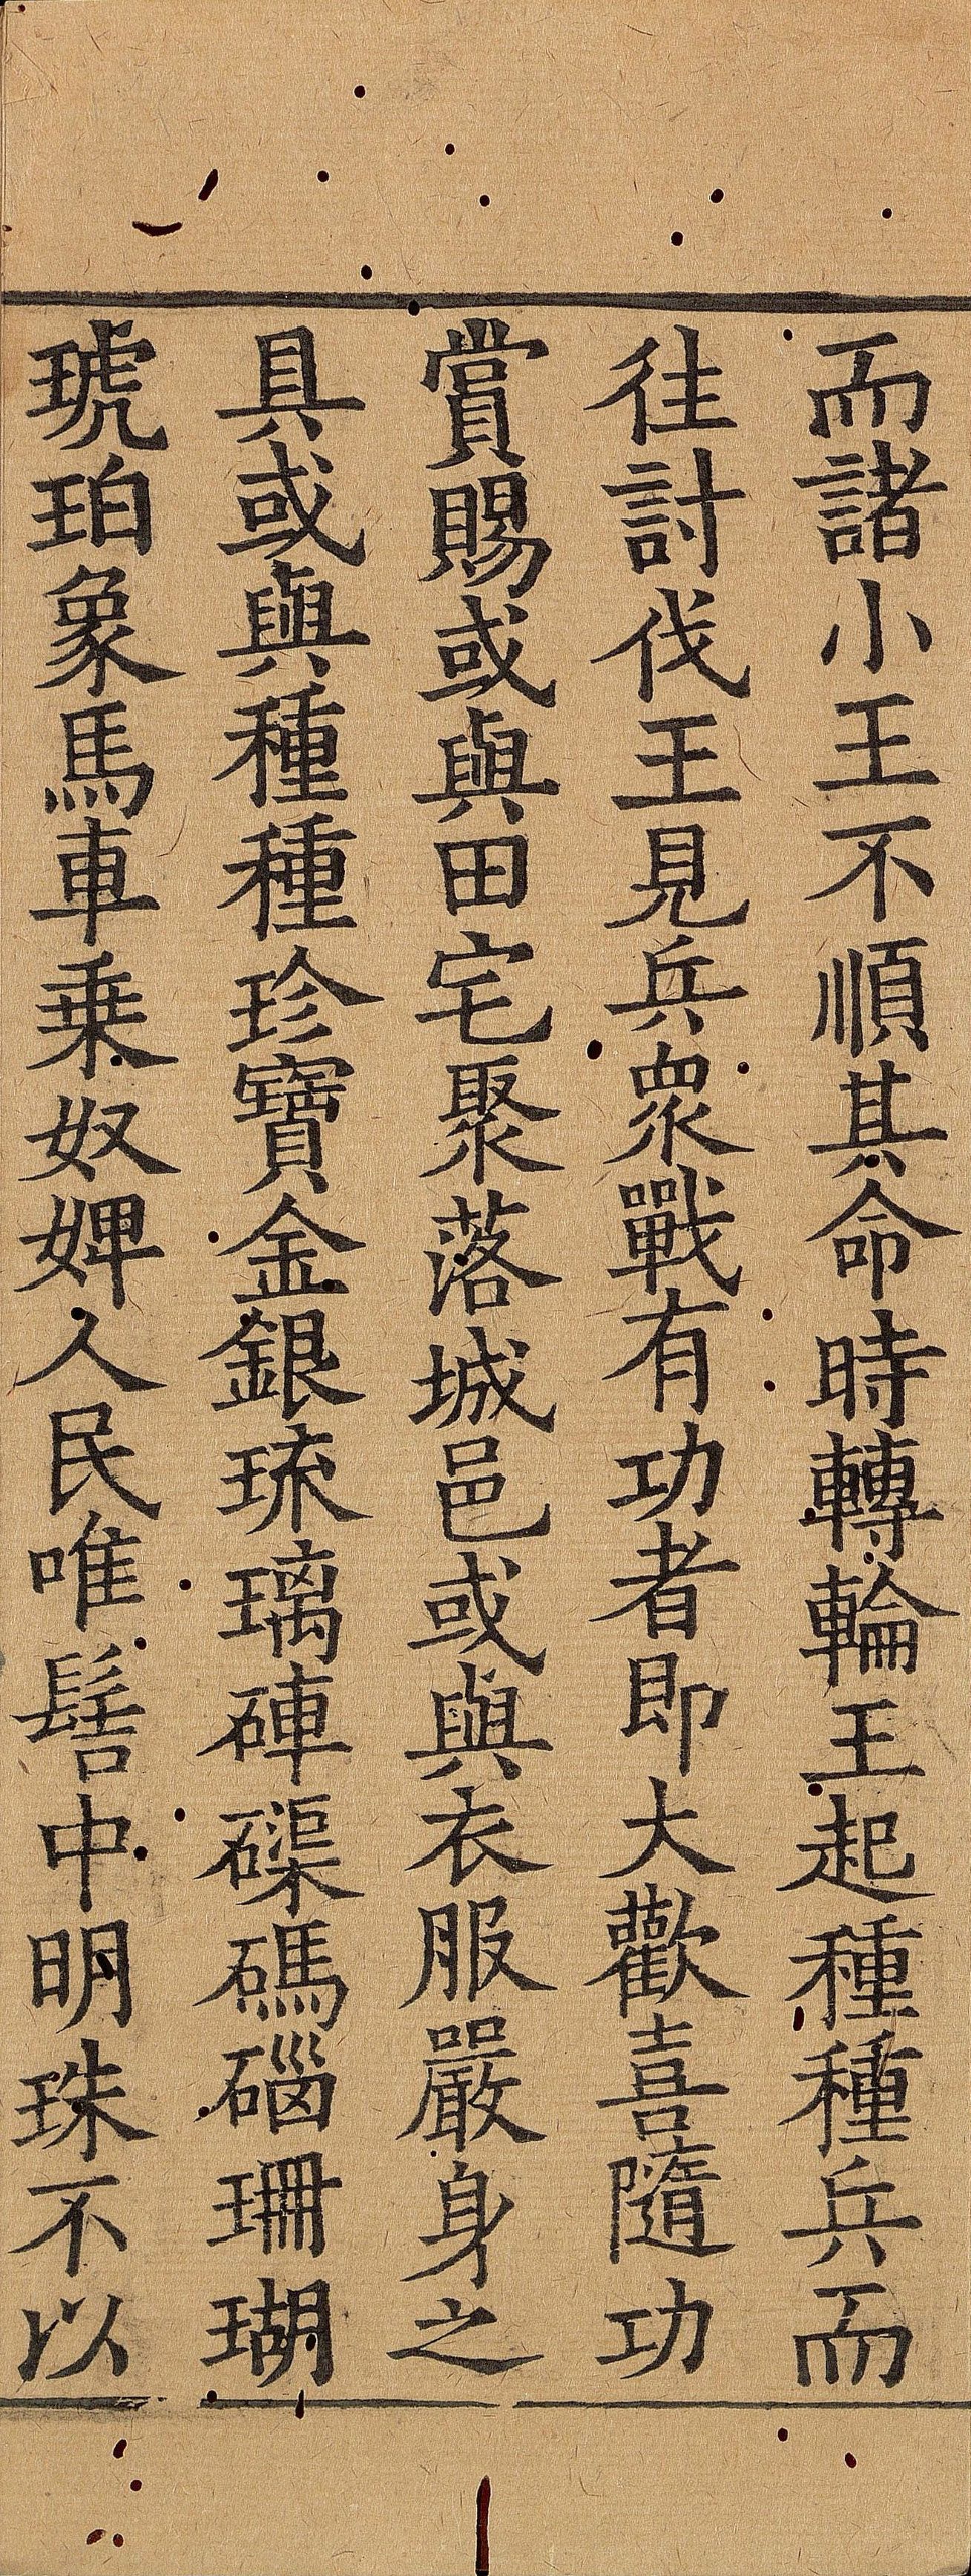 而諸小王不順其命時轉輪王起種種兵而
往討伐王見兵眾戰有功者即大歡喜隨功
賞賜或與田宅聚落城邑或與衣服嚴身之
具或與種種珍寶金銀琉璃硨磲碼碯珊瑚
琥珀象馬車乗奴婢人民唯髻中明珠不以